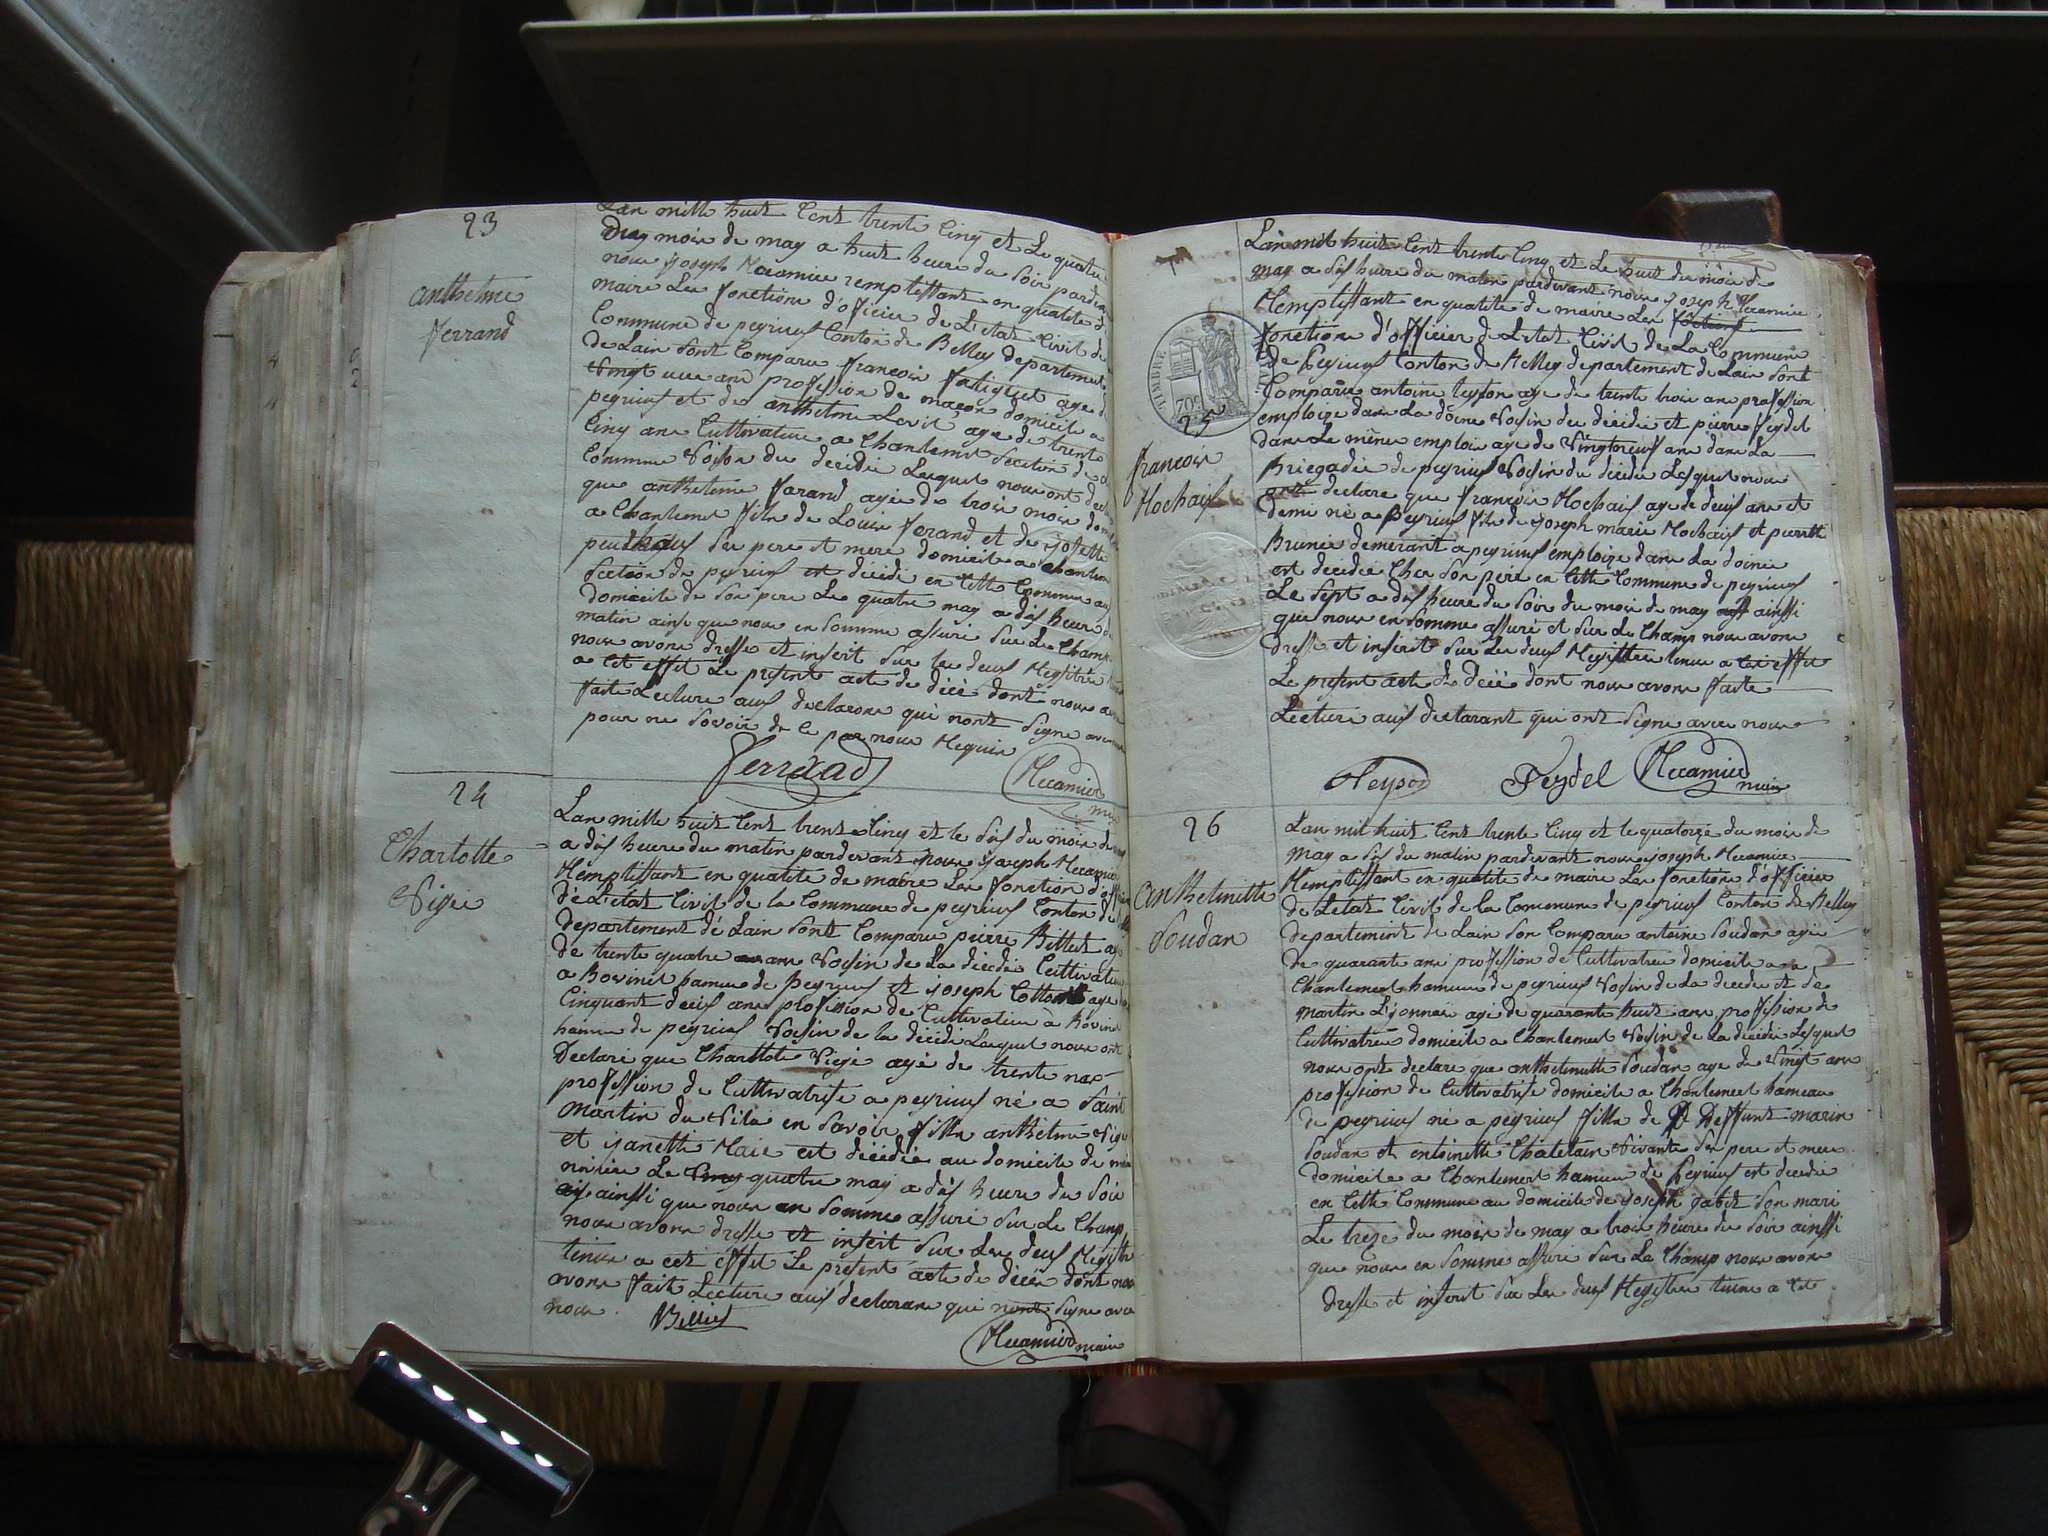 23
anthelme
ferrand
Lan mille huit Cent trente Cinq et Le quatre
Du moir de may a huit heure du Soir pardev
nour joseph Recamier remplissant en qualite d
maire Ler fonctionr d'officier de L'etat Civil de
Commune de peyrieuf Canton de Belley departement
de Lain Sont Comparu francoir faliquet age d
Vingt une anr profession de maçon domicile a
peyrieuf et de anthelme Levit age de trente
Cinq anr Cultivateur a Chantemet Section d
Commune Voisin du décidé Lesquel nour ont decl
que anthelme forand agée de troir moir dom
a Chantemet filr de Louir forand et de josette
Ser pere et mere domicile a Chantem
Section de peyrieuf est décidé en Cette Commune au
domicile de Son pere Le quatre may a dis heure d
matin ainsi que nour en Somme assuré Sur Le Champ
nour avonr dressé et insert Sur ler deuf Registre
a Cet effet Le present acte de décè dont nour av
faite Lecture auf declaranr qui nont Signe avec
pour ne Savoir de Ce par nour Requir
Ferrand
Recamier
maire
24
Charlotte
Vigée
Lan mille huit Cent trent Cinq et le Sis du moir de
a dis heure du matin pardevant nour joseph Recamier
Remplissant en qualite de maire Ler fonction d'officier
de L'etat Civil de la Commune de peyrieuf Conton de
departement de Lain Sont Comparu pierre Billiet age
de trente quatre anr Voisin de La décidé Cultivateur
a Rovinet hameu de Peyrieuf et joseph age
Cinquant deuf anr profession de Cultivateur à Rovinet
hameu de peyrieuf Voisin de la décidé Lesquel nour ont
Declaré que Charllote Vigé agé de trente
profession de Cultivatrise a peyrieuf né a Saint
Martin du Vila en Savoir fille anthelme Vigé
et janette est décidé au domicile de
Le Cinq quatre may a dis heure du Soir
ainssi que nour en Somme assuré Sur Le Champ
nour avonr dressé et insert Sur Ler deuf Registr
tenur a cet effet Le present acte de décèr dont nour
avonr fait Lecture auf declaranr qui nont Signe avec
nour. Billiet
Recamier maire
TIMBRE ROYAL
70
25
francoir
Rochaif
Lan mil huit Cent trente Cinq et Le huit du moir de
may a dis heure du matin pardevant nour joseph Recamier
Remplissant en qualite de maire Ler
fonctionr d'officier de L'etat Civil de La Commune
de Peyrieuf Canton de Belley departement de Lain Sont
Comparu antoine leysson age de trente troir anr profession
employe danr La doane Voisin du décidé et pierre feydel
danr Le même emploi age de Vingtneuf anr danr La
Briegade de peyrieuf Voisin du décidé Lesquel nour
ont declare que francoir Rochaif age de deuf anr et
demi né a Peyrieuf filr de joseph marie Rochaif et pierrett
Brunet demerant a peyrieuf employe danr La doine
est décidé Cher Son pere en Cette Commune de peyrieuf
Le Sept a dis heure du Soir du moir de may ainssi
que nour en Somme assuré et Sur Le Champ nour avonr
dressé et inserit Sur Ler deuf Registrer tenur a Cet effet
Le present acte de décè dont nour avonr faite
Lecture auf declarant qui ont Signe avec nour
Leyson Feydel Recamier
maire
26
anthelmitte
Soudan
Lan mil huit Cent trente Cinq et le quatorze du moir de
may a Sis du matin pardevant nour joseph Recamier
Remplissant en qualite de maire Ler fonctionr d'officier
de L'etat Civil de la Commune de peyrieuf Conton de Belley
departement de Lain Son Comparu antoine Soudan agé
de quarante anr profession de Cultivateur domicile a
Chantemert hameu de peyrieuf Voisin de La décédé et de
martin Lyonnair agé de quarante huit anr profession de
Cultivateur domicile a Chantemert Voisin de La décidé Lesquel
nour ont declare que anthelmitte Soudan age de Vingt anr
profession de Cultivatrise domicile a Chantemert hameau
de peyrieuf né a peyrieuf fille de Deffunt marin
Soudan et antoinette Chatelain Vivante Ser pere et mere
domicile a Chantemert hameu de Peyrieuf est décédé
en Cette Commune au domicile de joseph Son mari
Le treze du moir de may a troir heure du Soir ainssi
que nour en Somme assuré Sur Le Champ nour avonr
dressé et inserit Sur Ler deuf Registrer tenur a Cet